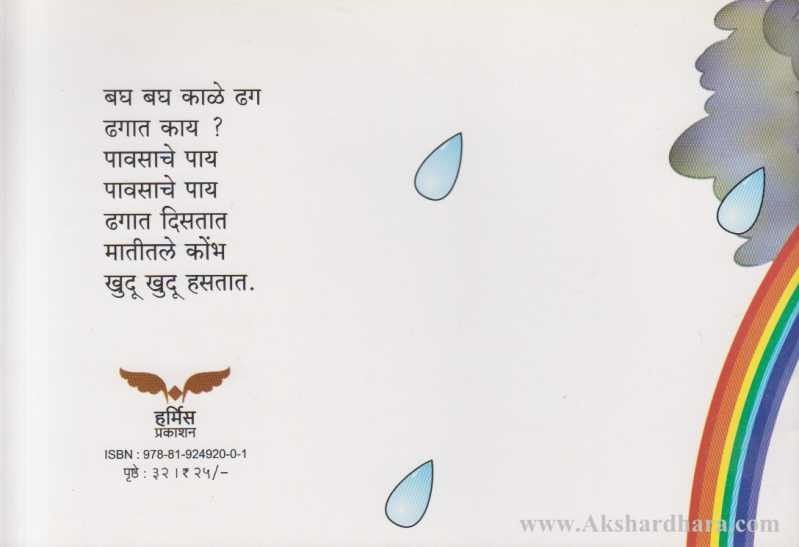 बघ बघ काळे ढग
ढगात काय ?
पावसाचे पाय
पावसाचे पाय
ढगात दिसतात
मातीतले कोंभ
खुदू खुदू हसतात.
हर्मिस
प्रकाशन
ISBN : 978-81-924920-0-1
पृष्ठे : ३२ । ₹ २५/–
www.Akshardhara.com